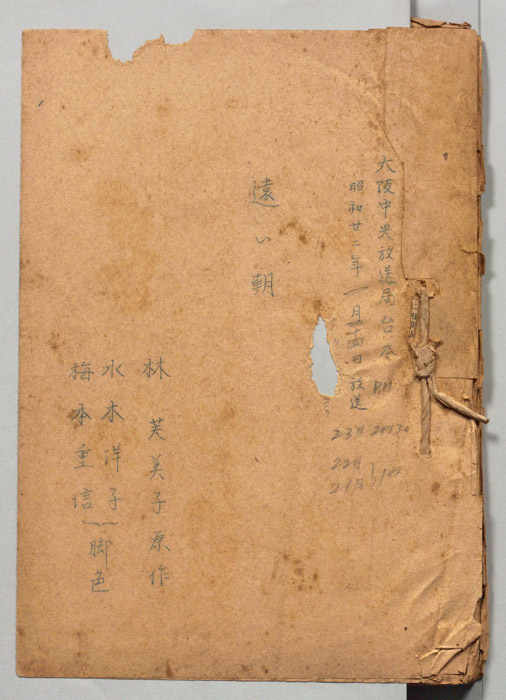 大阪中央放送局台本
昭和廿二年一月
放送
遠い朝
林芙美子原作
水木洋子
梅本重信
脚色